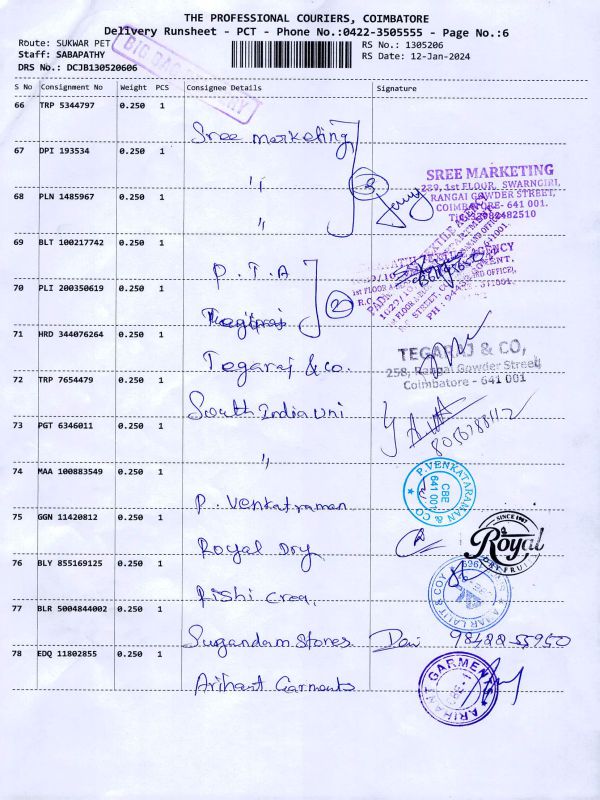 THE PROFESSIONAL COURIERS, COIMBATORE
Delivery Runsheet - PCT - Phone No.:0422-3505555 - Page No.:6
Route: SUKWAR PET
RS No.: 1305206
Staff: SABAPATHY
RS Date: 12-Jan-2024
DRS No.: DCJB130520606
S No Consignment No Weight PCS Consignee Details Signature
66 TRP 5344797 0.250 1
Sree marketing
67 DPI 193534 0.250 1
"
3
SREE MARKETING
239, 1st FLOOR, SWARNGIRI,
RANGAI GOWDER STREET,
COIMBATORE- 641 001.
68 PLN 1485967 0.250 1
"
69 BLT 100217742 0.250 1
P.T.A
70 PLI 200350619 0.250 1
2
71 HRD 344076264 0.250 1
Tegaraj & co.
TEGARAJ & CO,
258, Rangai Gowder Street,
Coimbatore - 641 001
72 TRP 7654479 0.250 1
South India Uni
73 PGT 6346011 0.250 1
"
74 MAA 100883549 0.250 1
P. Venkatraman
P.VENKATARAMAN & CO
CBE
641 001
75 GGN 11420812 0.250 1
Royal Dry
SINCE 1967
Royal
DRY FRUIT
76 BLY 855169125 0.250 1
Rishi Crea.
77 BLR 5004844002 0.250 1
Sugandam Stores
98422 55950
78 EDQ 11802855 0.250 1
Arihant Garments
ARIHANT GARMENTS